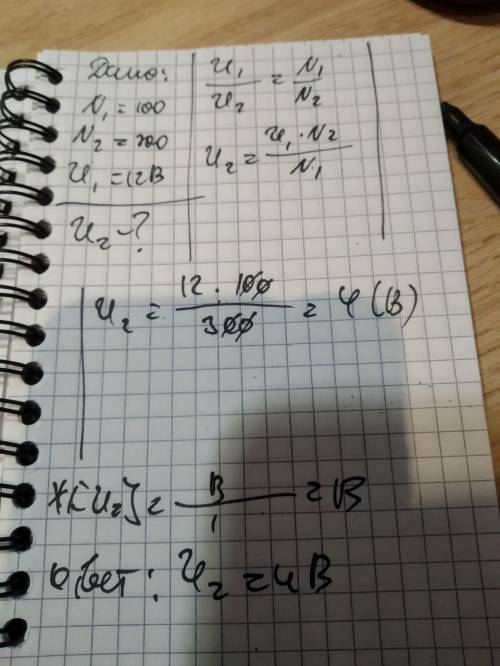 Дано:
N₁ = 100
N₂ = 300
U₁ = 12В
U₂ - ?
U₁/U₂ = N₁/N₂
U₂ = U₁ · N₂ / N₁
U₂ = 12 · 100 / 300 = 4 (В)
*[U₂] = В / 1 = В
Ответ: U₂ = 4 В